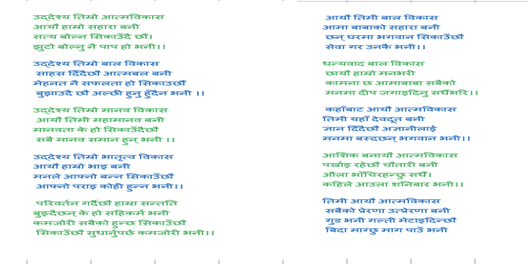 उद्देश्य तिम्रो आत्मविकास
आयौ हाम्रो सहारा बनी
सत्य बोल्न सिकाउँदै छौ।
झुटो बोल्नु नै पाप हो भनी।।
उद्देश्य तिम्रो बाल विकास
साहस दिँदैछौ आत्मबल बनी
मेहनत नै सफलता हो सिकाउछौं
बुझाउदै छौ अल्छी हुनु हुँदैन भनी ।।
उद्देश्य तिम्रो मानव विकास
आयौं तिमी महामानव बनी
मानवता के हो सिकाउँदैछौ
सबै मानव समान हुन् भनी ।।
उद्देश्य तिम्रो भातृत्व विकास
आयौ हाम्रो भाइ बनी
मनले आफ्नो बन्न सिकाउँछौ
आफ्नो पराइ कोही हुन्न भनी।।
परिवर्तन गर्दैछौ हाम्रा सन्तती
बुझ्दैछन् के हो सहिकर्म भनी
कमजोरी सबैको हुन्छ सिकाउँछौ
सिकाउँछौ सुधार्नुपर्छ कमजोरी भनी।।
आयौ तिमी बाल विकास
आमा बाबाको सहारा बनी
छन् घरमा भगवान सिकाउँछौ
सेवा गर उनकै भनी।।
धन्यवाद बाल विकास
छायौ हाम्रो मनभरी
कामना छ आमाबाबा सबैको
मनमा दीप जगाइदिनु सधैंभरि।।
कहाँबाट आयौ आत्मविकास
तिमी यहाँ देवदूत बनी
ज्ञान दिँदैछौ अज्ञानीलाई
मनमा बस्दछन् भगवान भनी।।
आशिक बनायौ आत्मविकास
पर्खाइ रहेछौं चौतारी बनी
औंला भाँचिरहन्छु सधैँ।
कहिले आउला शनिबार भनी।।
तिमी आयौ आत्मविकास
सबैको प्रेरणा उत्प्रेरणा बनी
गुड भनी गल्ती मेटाइदिन्छौ
बिदा माग्छु माग पाउँ भनी